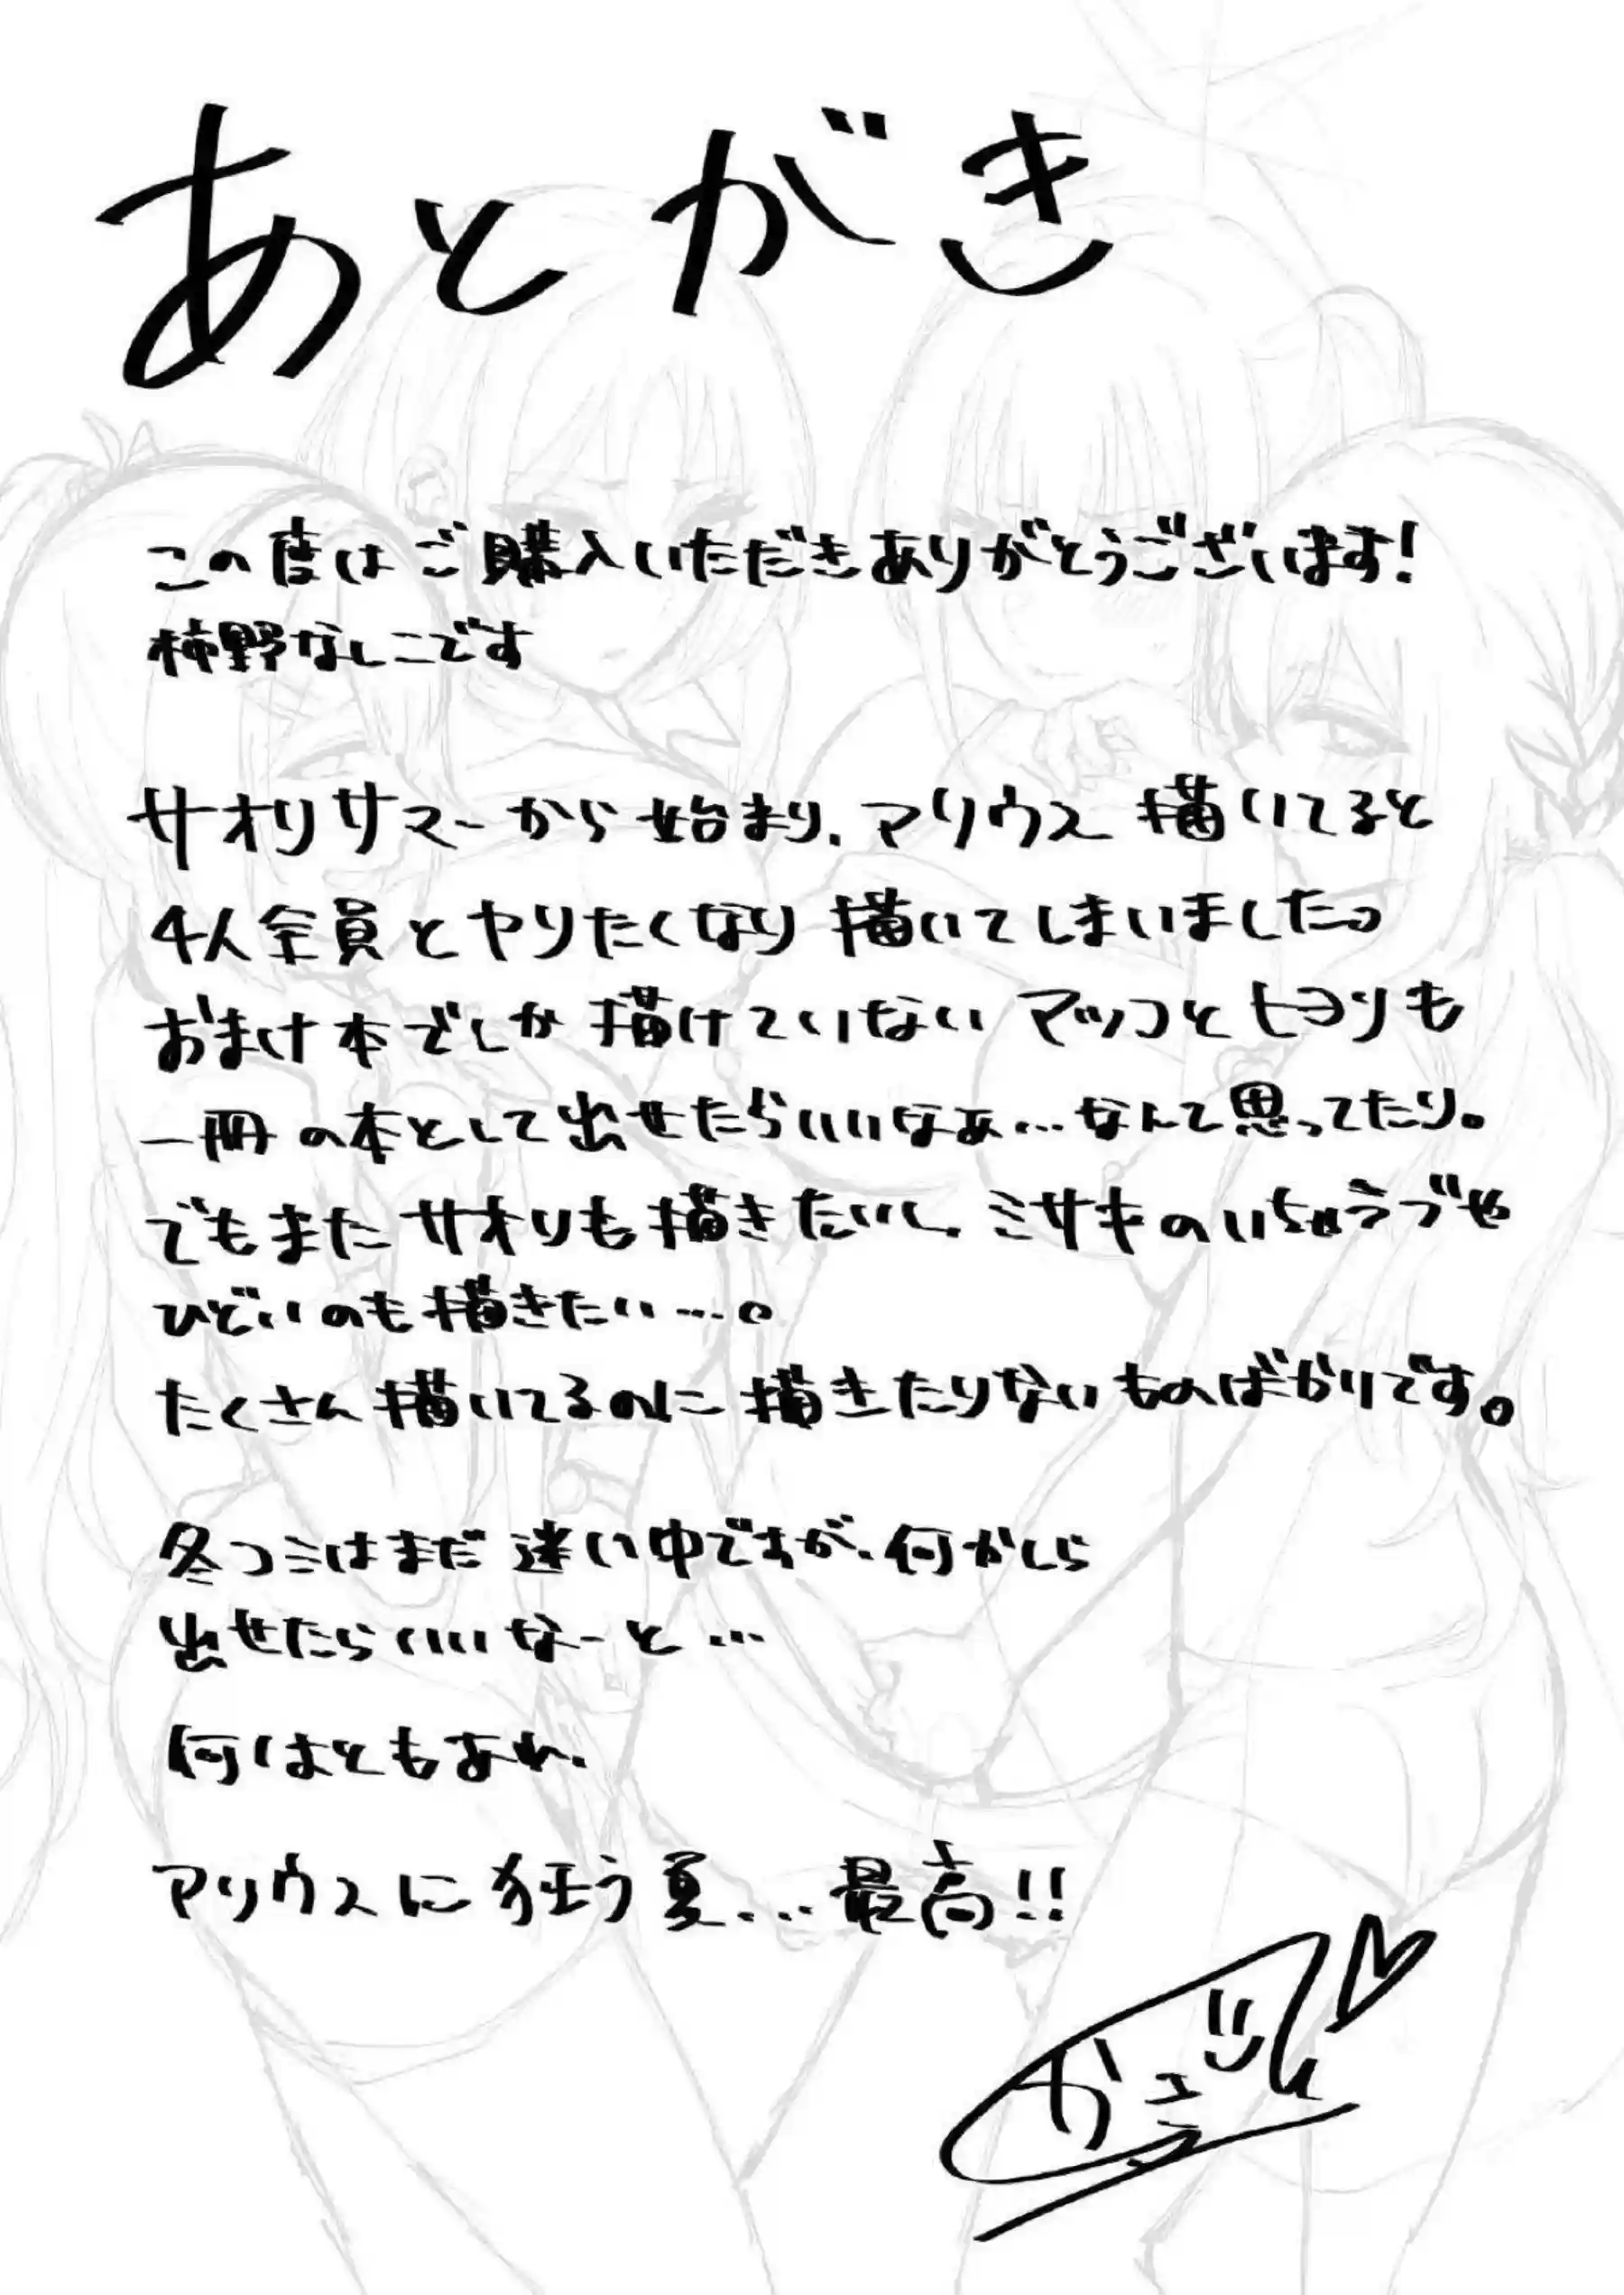 あとがき
この度はご購入いただきありがとうございます!
柿野なしこです
サオリサマーから始まり、アリウス描いてると
4人全員とヤりたくなり描いてしまいましたっ
おまけ本でしか描けていないアツコとヒヨリも
一冊の本として出せたらいいなぁ…なんて思ってたり。
でもまたサオリも描きたいし、ミサキのいちゃラブや
ひどいのも描きたい…。
たくさん描いてるのに描きたりないものばかりです。
冬コミはまだ迷い中ですが、何かしら
出せたらいいなーと…
何はともあれ、
アリウスに狂う夏...最高!!